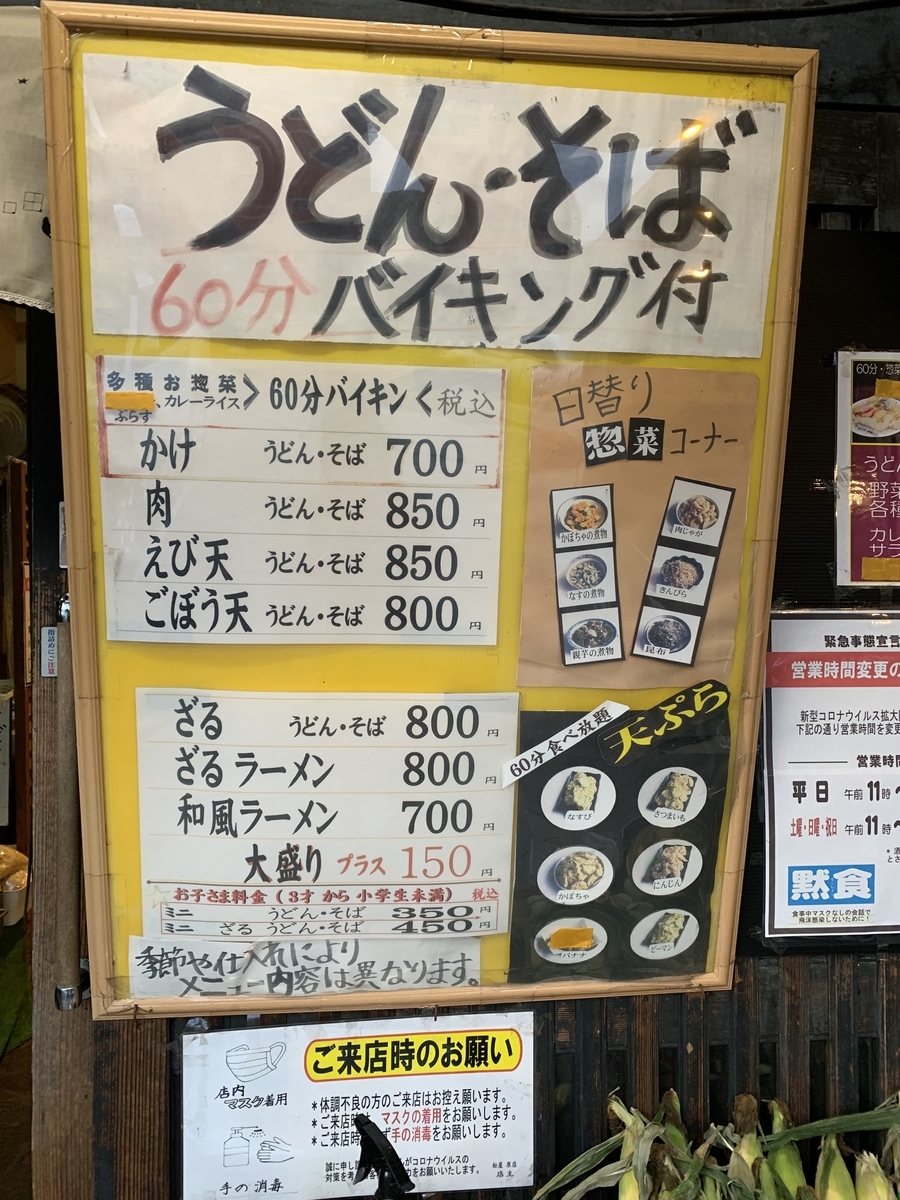 うどん・そば
60分バイキング付
多種お惣菜
、カレーライス
ぷらす
60分バイキン
税込
かけ うどん・そば 700円
肉 うどん・そば 850円
えび天 うどん・そば 850円
ごぼう天 うどん・そば 800円
ざる うどん・そば 800円
ざるラーメン 800円
和風ラーメン 700円
大盛り プラス 150円
お子さま料金(3才から小学生未満) 税込
ミニ うどん・そば 350円
ミニ ざる うどん・そば 450円
季節や仕入れにより
メニュー内容は異なります。
日替り
惣菜コーナー
かぼちゃの煮物
なすの煮物
親芋の煮物
肉じゃが
きんぴら
昆布
60分食べ放題
天ぷら
なすび
さつまいも
かぼちゃ
にんじん
バナナ
ピーマン
ご来店時のお願い
店内
マスク着用
手の消毒
*体調不良の方のご来店はお控え願います。
*ご来店時 マスクの着用をお願いします。
*ご来店時 ず手の消毒をお願いします。
誠に申し がコロナウイルスの
対策を考 力をお願いいたします。
店主
60分・惣菜
うどん
野菜
各種
カレ
サラ
緊急事態宣言
営業時間変更の
新型コロナウイルス拡大
下記の通り営業時間を変更
営業時間
平日 午前11時~
土曜・日曜・祝日 午前11時~
黙食
食事中マスクなしの会話で
飛沫感染しないために!
指詰めにご注意